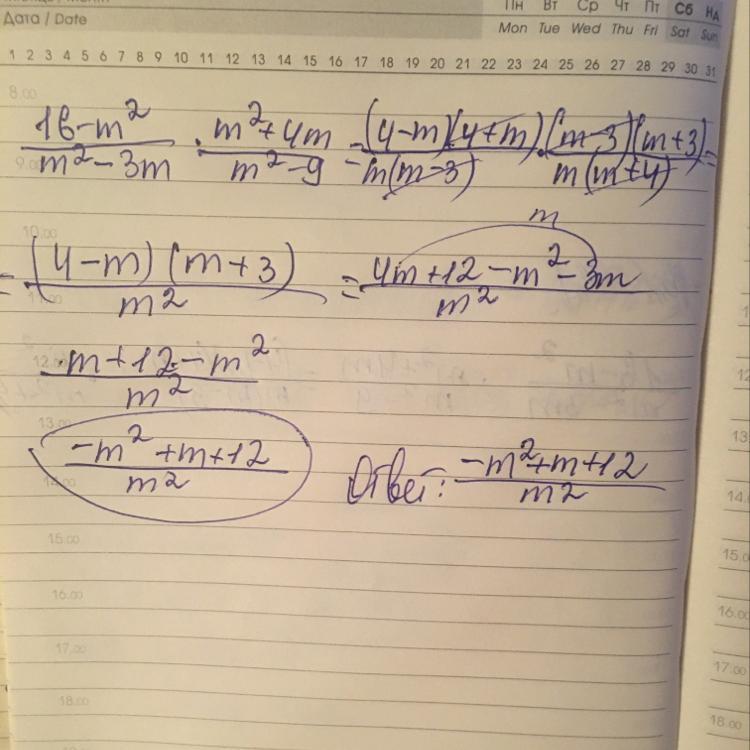 Дата / Date
Пн Вт Ср Чт Пт Сб
Mon Tue Wed Thu Fri Sat Sun
1 2 3 4 5 6 7 8 9 10 11 12 13 14 15 16 17 18 19 20 21 22 23 24 25 26 27 28 29 30 31
8.00
(16-m²)/(m²-3m) · (m²+4m)/(m²-9) = ((4-m)(4+m))/(m(m-3)) · ((m-3)(m+3))/(m(m+4)) =
9.00
10.00
m
= ((4-m)(m+3))/m² = (4m+12-m²-3m)/m²
11.00
12.00
(m+12-m²)/m²
13.00
(-m²+m+12)/m² Ответ: (-m²+m+12)/m²
14.00
15.00
16.00
17.00
18.00
13.
14.00
15.00
16.00
17.00
18.00